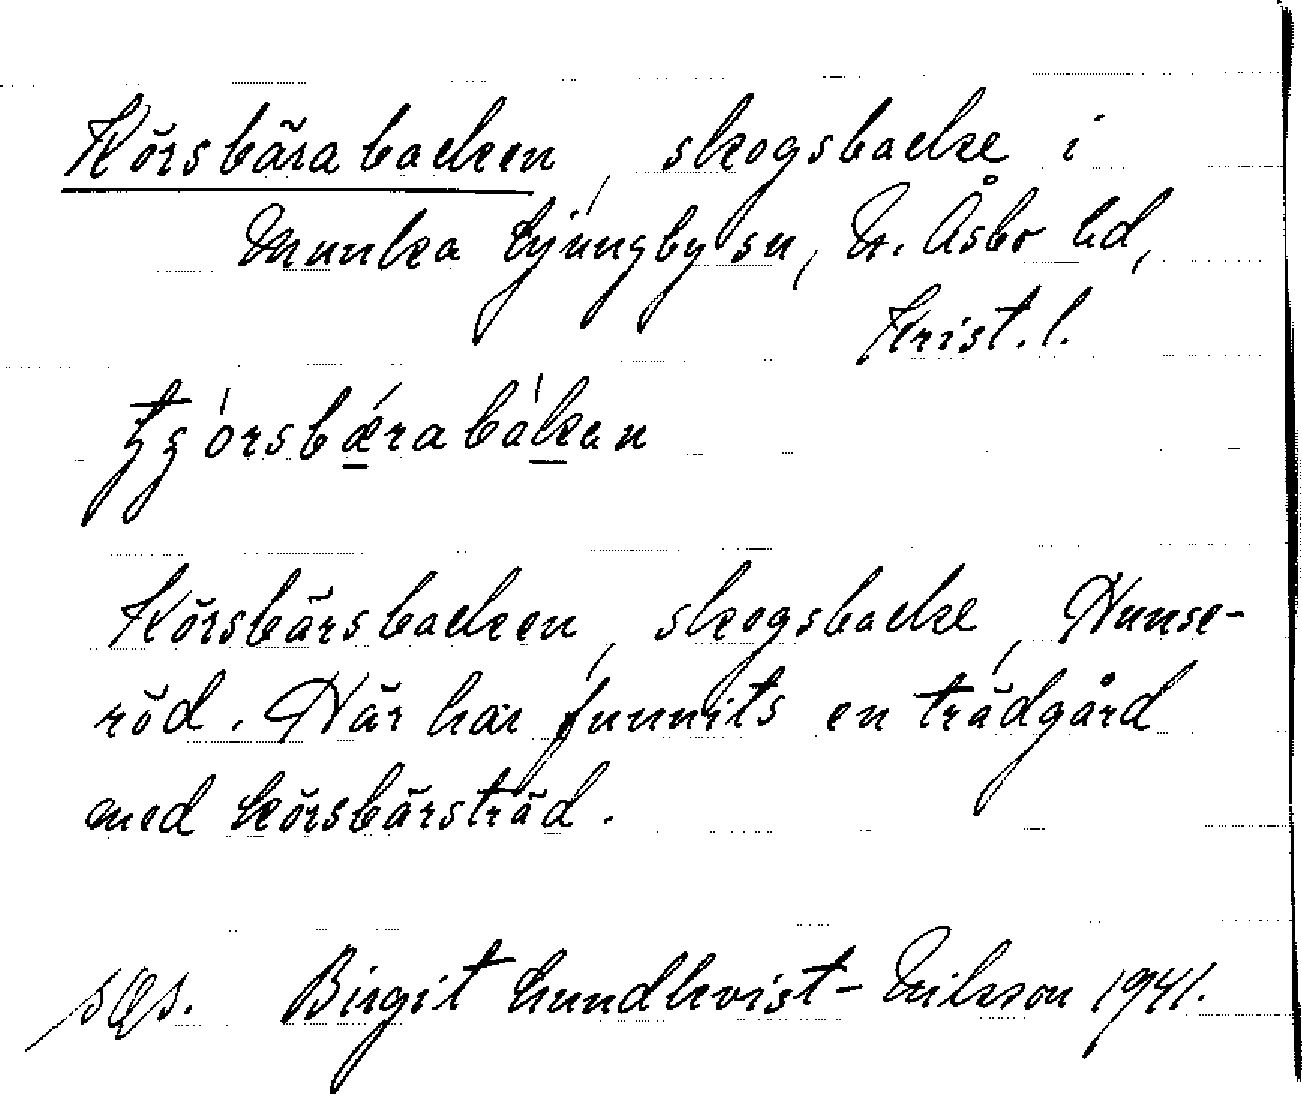 Körsbärabacken, skogsbacke i
Munka Ljungby sn, N. Åsbo hd,
Krist. l.
Körsbärsbacken, skogsbacke, Hunse-
röd. Här har funnits en trädgård
med körsbärsträd.
Birgit Lundkvist-Nilsson 1941.